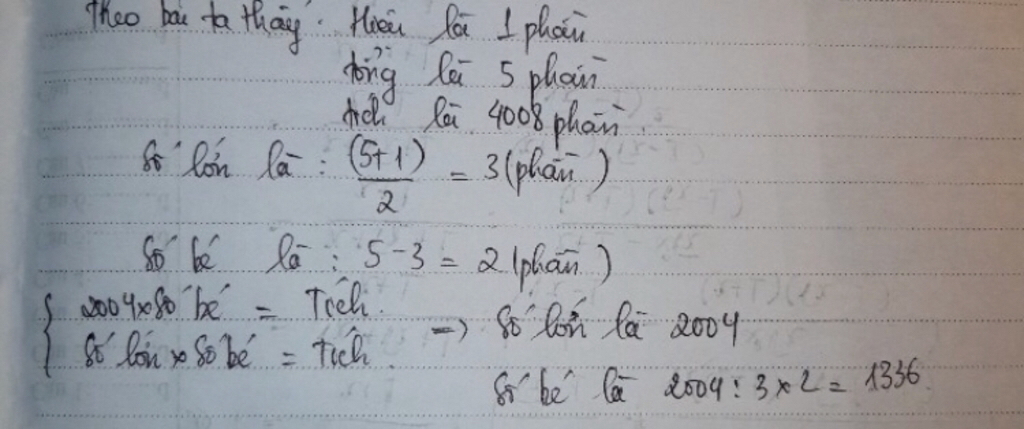 Theo bài ta thấy: Hiệu là 1 phần
tổng là 5 phần
tích là 4008 phần.
Số lớn là : (5+1)/2 = 3 (phần)
Số bé là : 5 - 3 = 2 (phần)
{ 2004 x số bé = Tích. => Số lớn là 2004
{ Số lớn x số bé = Tích.
Số bé là 2004 : 3 x 2 = 1336.